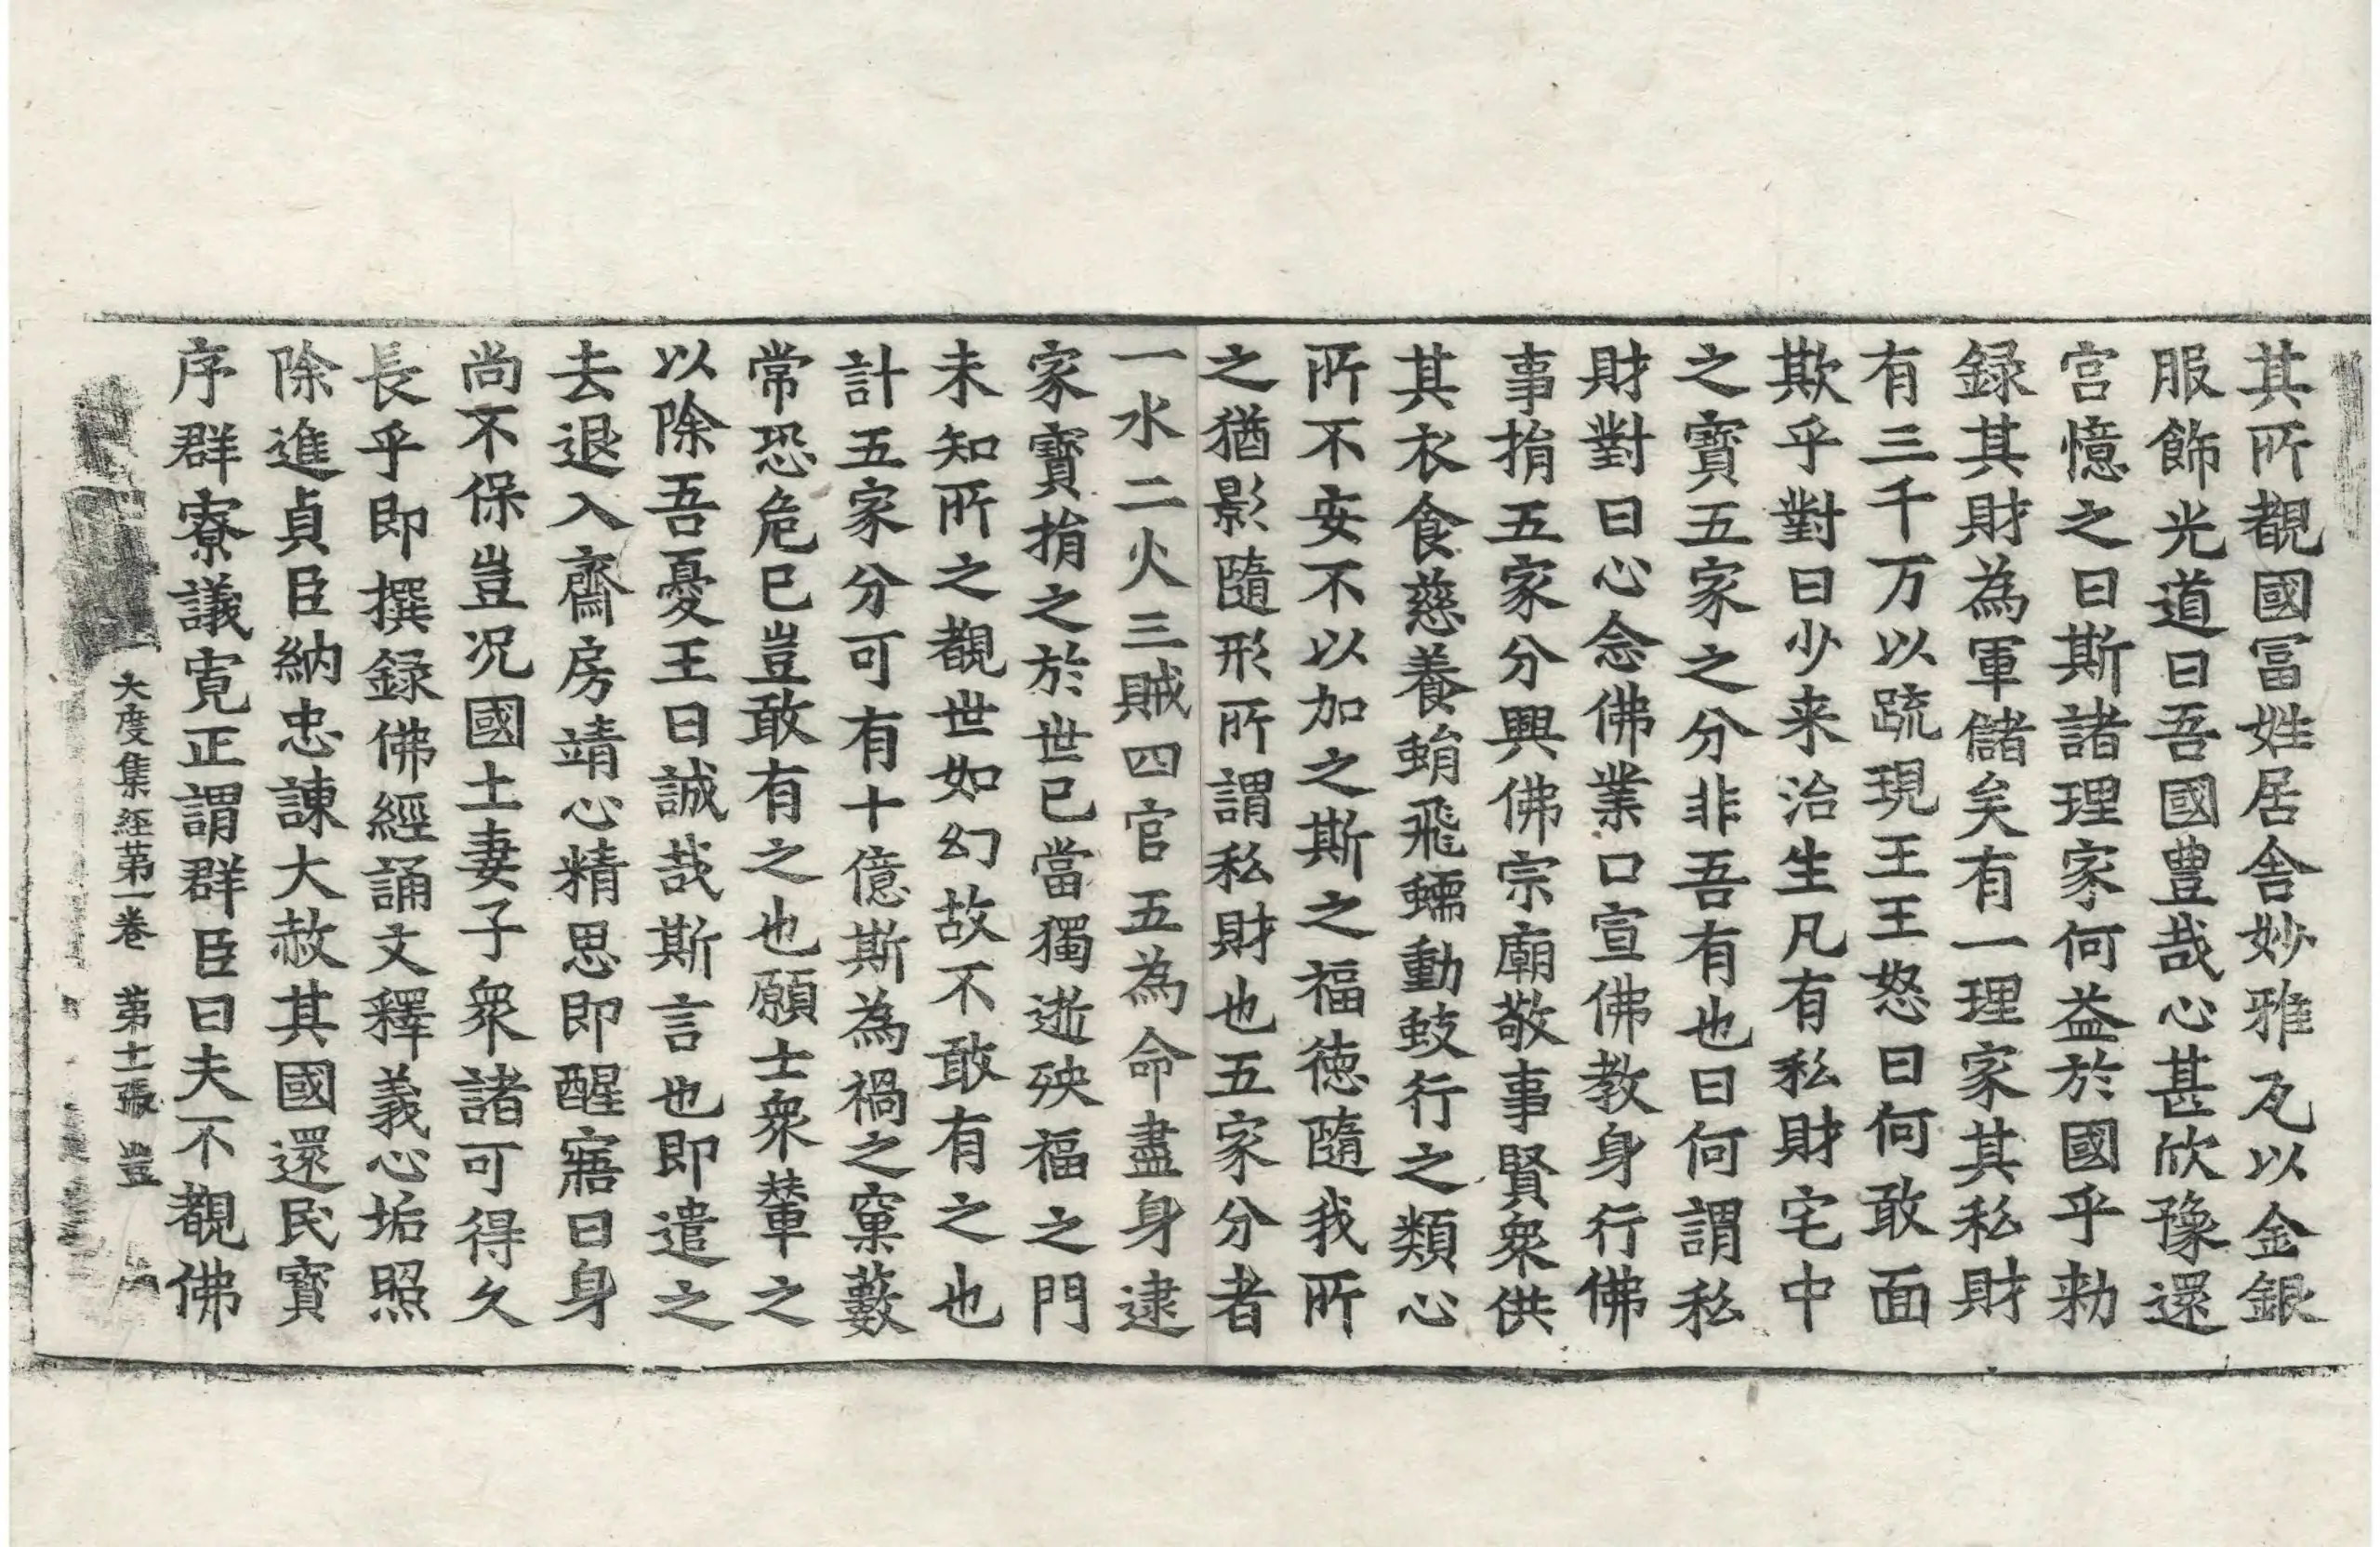 其所覩國冨姓居舍妙雅瓦以金銀
服飾光道曰吾國豊哉心甚欣豫還
宫憶之曰斯諸理家何益於國乎勑
録其財為軍儲矣有一理家其私財
有三千万以䟽現王王怒曰何敢面
欺乎對曰少来治生凡有私財宅中
之寶五家之分非吾有也曰何謂私
財對曰心念佛業口宣佛教身行佛
事捐五家分興佛宗廟敬事賢衆供
其衣食慈養蜎飛蠕動蚑行之類心
所不安不以加之斯之福徳隨我所
之猶影隨形所謂私財也五家分者
一水二火三賊四官五為命盡身逮
家寶捐之於世已當獨逝殃福之門
未知所之覩世如幻故不敢有之也
計五家分可有十億斯為禍之窠藪
常恐危已豈敢有之也願士衆輦之
以除吾憂王曰誠哉斯言也即遣之
去退入齋房靖心精思即醒寤曰身
尚不保豈况國土妻子衆諸可得久
長乎即撰録佛經誦文釋義心垢照
除進貞臣納忠諫大赦其國還民寶
序群寮議寛正謂群臣曰夫不覩佛
大度集経苐一卷 苐十一張 豊